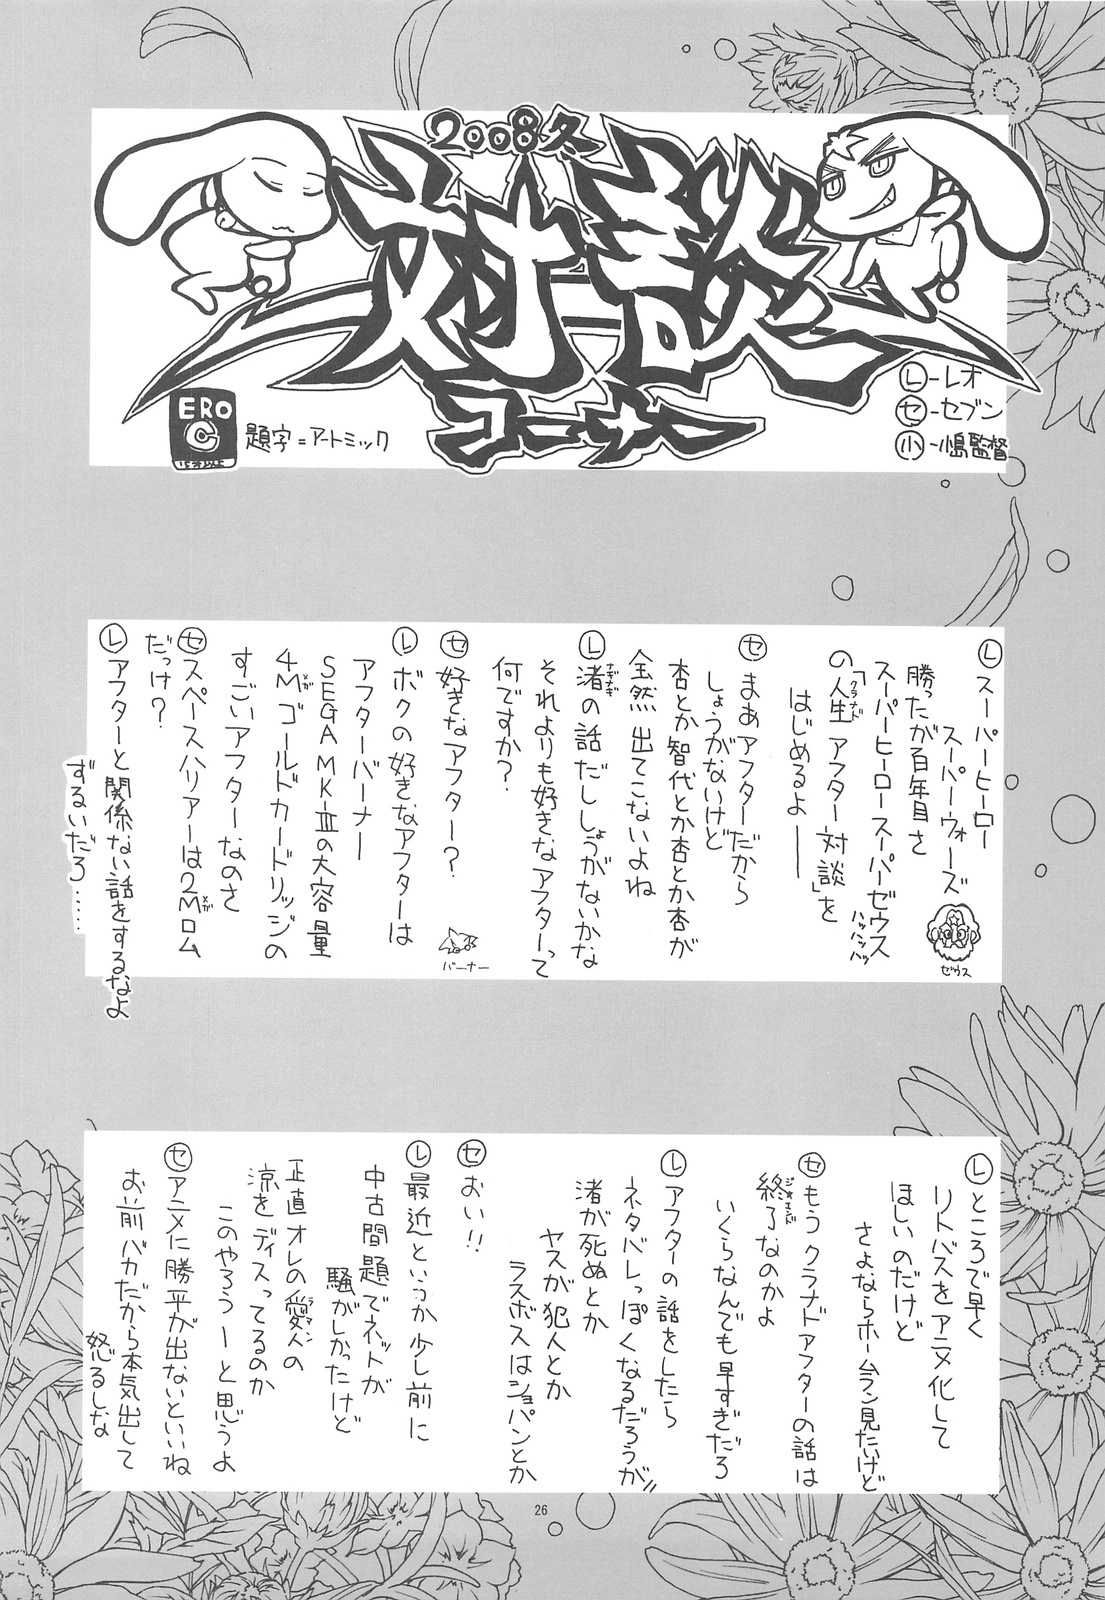 2008冬
対談
コーナー
ERO
C
題字=アートミック
Ⓛ-レオ
㋝-セブン
㋛-小島監督
Ⓛスーパーヒーロー
スーパーウォーズ
勝ったが百年目さ
スーパーヒーロースーパーゼウス
ハッハッハッ
の「人生 アフター対談」を
クラナド
はじめるよ――
ゼウス
㋝まあアフターだから
しょうがないけど
杏とか智代とか杏とか杏が
全然出てこないよね
Ⓛ渚の話だししょうがないかな
なぎなぎ
それよりも好きなアフターって
何ですか?
㋝好きなアフター?
バーナー
Ⓛボクの好きなアフターは
アフターバーナー
SEGAMK-Ⅲの大容量
4Mゴールドカードリッジの
メガ
すごいアフターなのさ
㋝スペースハリアーは2Mロム
メガ
だっけ?
Ⓛアフターと関係ない話をするなよ
ずるいだろ……
Ⓛところで早く
リトバスをアニメ化して
ほしいのだけど
さよならホームラン見たいけど
㋝もうクラナドアフターの話は
終了なのかよ
ジ・エンド
いくらなんでも早すぎだろ
Ⓛアフターの話をしたら
ネタバレっぽくなるだろうが!!
渚が死ぬとか
ヤスが犯人とか
ラスボスはショパンとか
㋝おい!!
Ⓛ最近というか少し前に
中古問題でネットが
騒がしかったけど
正直オレの愛人の
ラマン
涼をディスってるのか
このやろうーと思うよ
㋝アニメに勝平が出ないといいね
お前バカだから本気出して
怒るしな
26